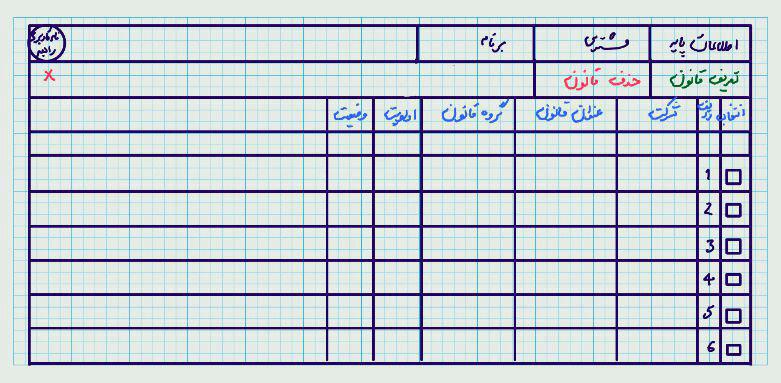 اطلاعات پایه مشتری برنامه نام کاربری راهبر
تعریف قانون حذف قانون x
انتخاب ردیف شرکت عنوان قانون گروه قانون اولویت وضعیت
1
2
3
4
5
6